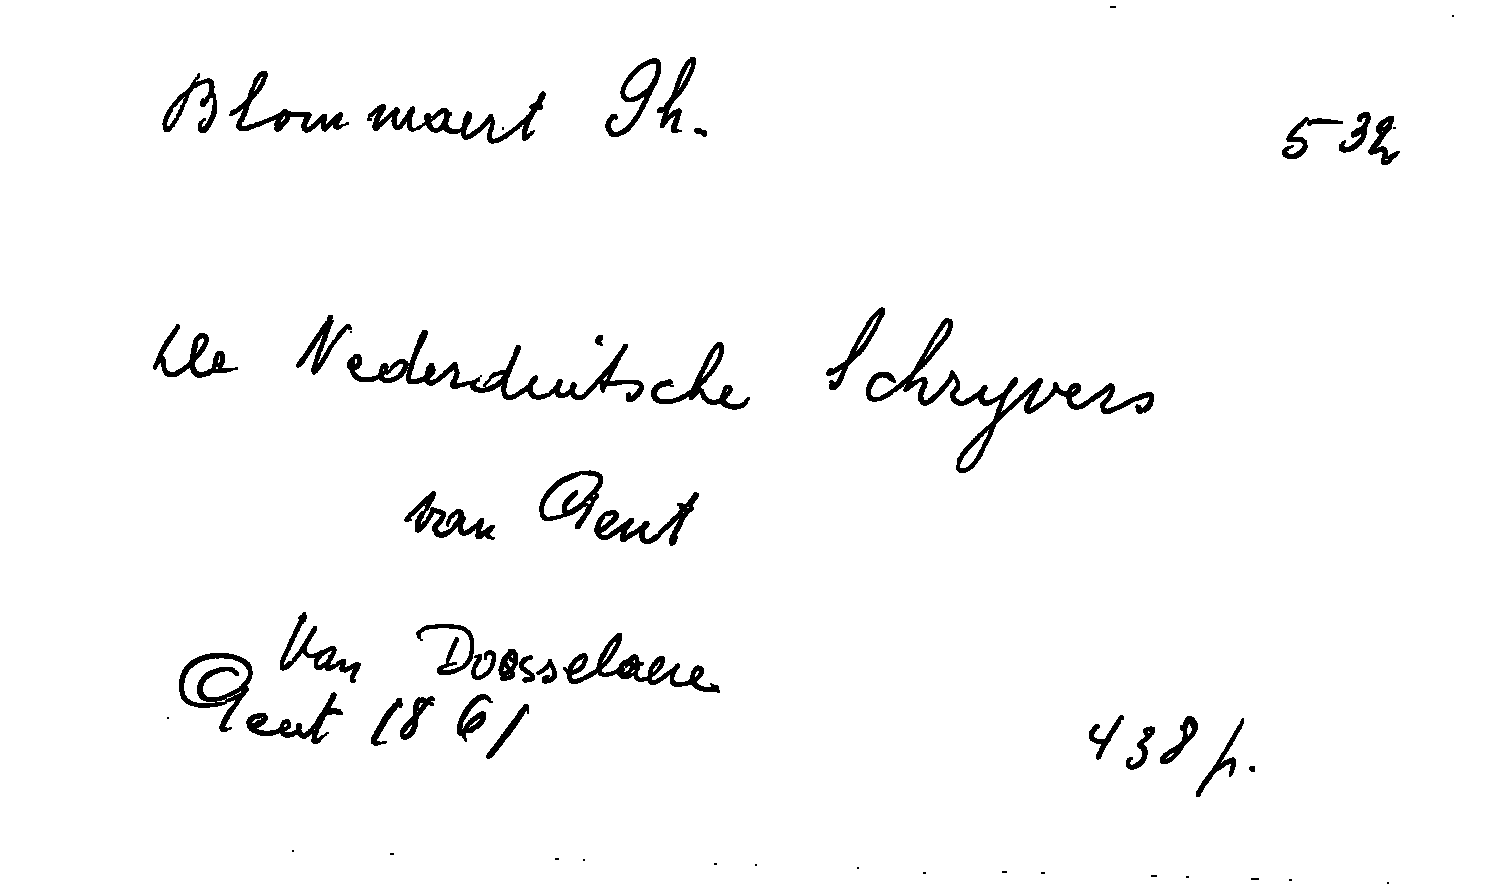 Blommaert Ph. 532
De Nederduitsche Schryvers
van Gent
Van Doosselaere
Gent 1861
438 p.